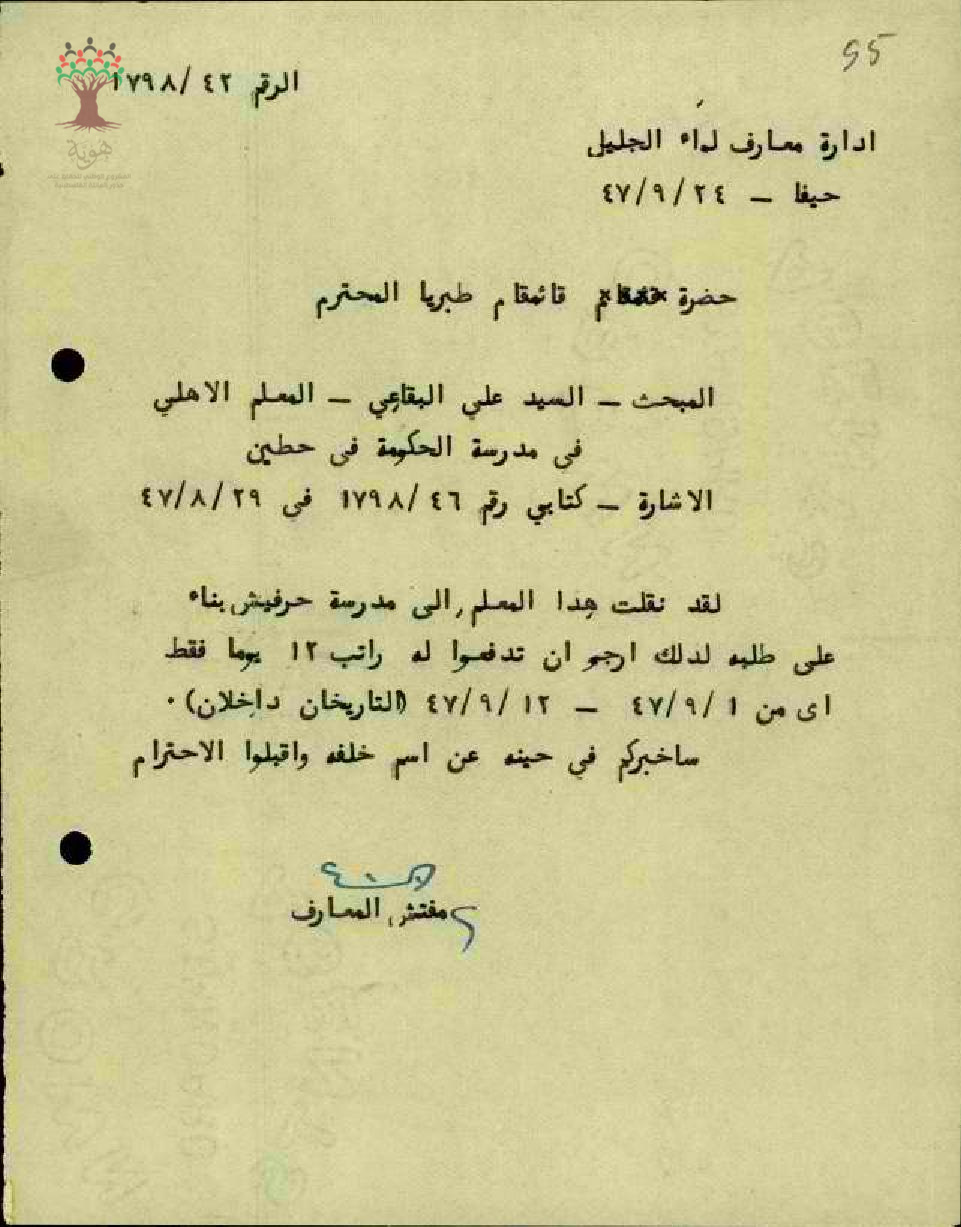 95
الرقم ٤٢/١٧٩٨
هوية
ادارة معارف لواء الجليل
حيفا – ٢٤/٩/٤٧
حضرة قائمقام طبريا المحترم
المبحث – السيد علي البقاعي – المعلم الاهلي
فى مدرسة الحكومة فى حطين
الاشارة – كتابي رقم ٤٦/١٧٩٨ فى ٢٩/٨/٤٧
لقد نقلت هذا المعلم الى مدرسة حرفيش بناء
على طلبه لذلك ارجو ان تدفعوا له راتب ١٢ يوما فقط
اى من ١/٩/٤٧ – ١٢/٩/٤٧ (التاريخان داخلان)٠
ساخبركم في حينه عن اسم خلفه واقبلوا الاحترام
مفتش المعارف